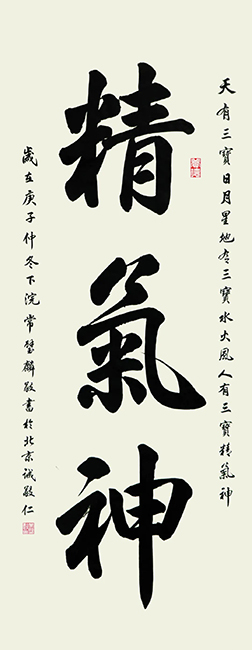 天有三寶日月星地有三寶水火風人有三寶精氣神
精氣神
歲在庚子仲冬下浣常璧麟敬書於北京誠敬仁